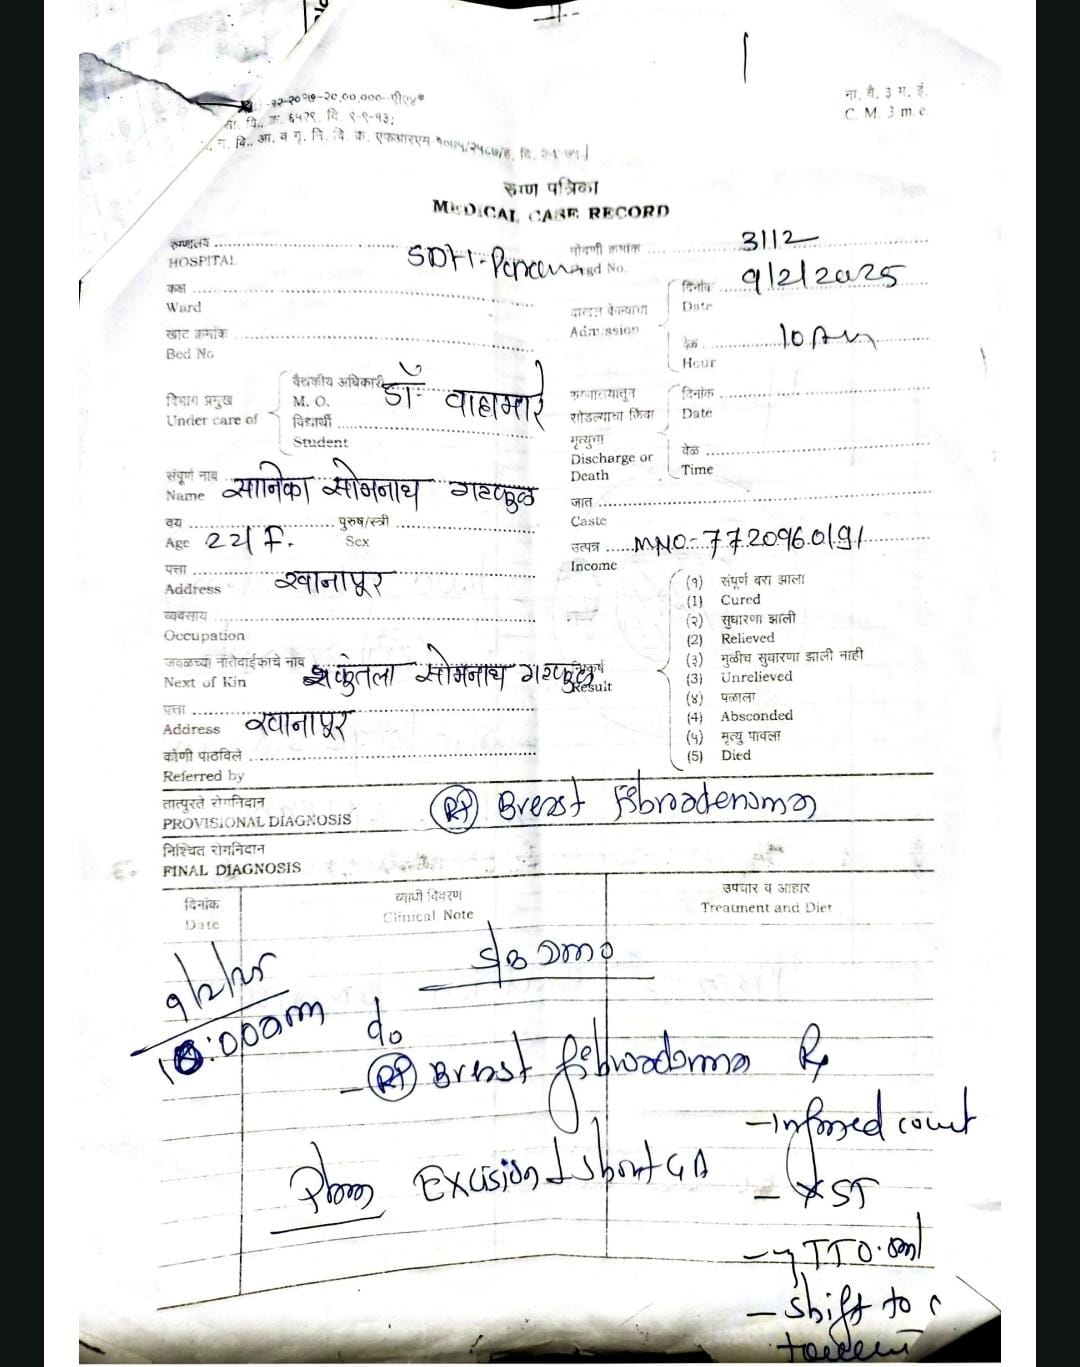 -१२-२०१७-२०,००,०००-पीए४*
वि., क्र. ६५२९, दि. १-९-१३;
वि., आ. व गृ. नि. वि. क्र. एफआरएम
ना. वै. ३ म. ई.
C. M. 3 m. e.
रुग्ण पत्रिका
MEDICAL CASE RECORD
रुग्णालय
HOSPITAL SDH-
नोंदणी क्रमांक 3112
Regd No.
कक्ष
Ward
दाखल केल्याचा
Admission
दिनांक 9/2/2025
Date
खाट क्रमांक
Bed No
वेळ 10 Am
Hour
विभाग प्रमुख
Under care of
वैद्यकीय अधिकारी डॉ वाहामारे
M. O.
विद्यार्थी
Student
रुग्णालयातून
सोडल्याचा किंवा
मृत्युचा
Discharge or
Death
दिनांक
Date
वेळ
Time
संपूर्ण नाव सानिका सोमनाथ गटकुळ
Name
जात
Caste
वय पुरुष/स्त्री
Age 22/F. Sex
उत्पन्न MNO-7720960191
Income
पत्ता खानापूर
Address
व्यवसाय
Occupation
जवळच्या नातेवाईकाचे नाव शकुंतला सोमनाथ गटकुळ
Next of Kin
पत्ता खानापूर
Address
कोणी पाठविले
Referred by
निष्कर्ष
Result
(१) संपूर्ण बरा झाला
(1) Cured
(२) सुधारणा झाली
(2) Relieved
(३) मुळीच सुधारणा झाली नाही
(3) Unrelieved
(४) पळाला
(4) Absconded
(५) मृत्यु पावला
(5) Died
तात्पुरते रोगनिदान
PROVISIONAL DIAGNOSIS Rt Breast fibroadenoma
निश्चित रोगनिदान
FINAL DIAGNOSIS
दिनांक व्याधी विवरण उपचार व आहार
Date Clinical Note Treatment and Diet
9/2/25 s/b
10:00am
c/o
- Rt Breast fibroadenoma Rx
- Informed
Plan Excision short GA
- XST
- TT 0.
- shift to